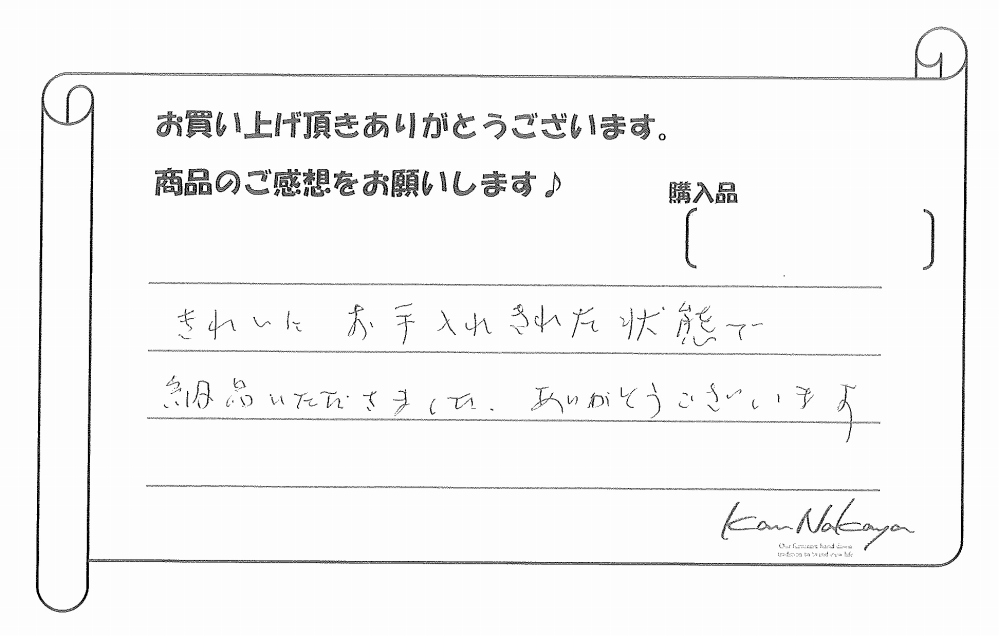 お買い上げ頂きありがとうございます。
商品のご感想をお願いします♪
購入品
きれいに お手入れされた状態で
納品いただきました。ありがとうございます
Kan Nakaya